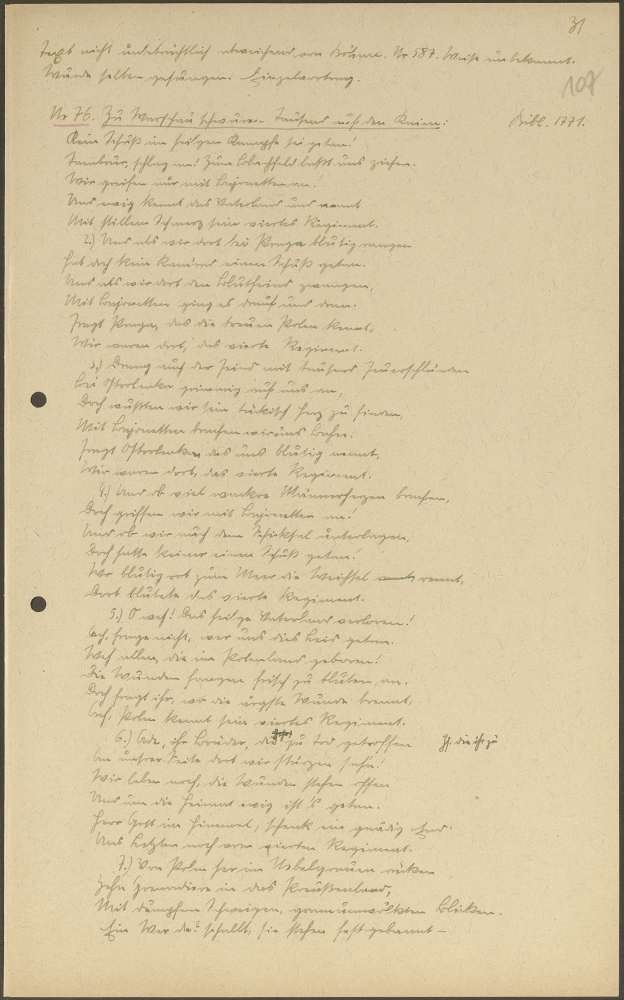 31
Text nicht unbeträchtlich abweichend von Böhme. Nr 587. Weise unbekannt.
Wurde selten gesungen. Einzelvortrag.
107
Nr 76. Zu Warschau schwuren Tausend auf den Knien: Bibl. 1771.
Kein Schuß im heilgen Kampfe sei getan!
Tambour, schlag an! Zum Blachfeld laßt uns ziehen.
Wir greifen nur mit Bajonetten an.
Und ewig kennt das Vaterland und nennt
Mit stillem Schmerz sein viertes Regiment.
2.) Und als wir dort bei Praga blutig rangen
hat doch kein Kamrad einen Schuß getan.
Und als wir dort den Blutfeind zwangen,
Mit Bajonetten ging es drauf und dran.
Fragt Praga, das die treuen Polen kennt,
Wir waren dort, das vierte Regiment.
3.) Drang auch der Feind mit tausend Feuerschlünden
bei Ostrolenka grimmig auf uns an,
Doch wußten wir sein tückisch Herz zu finden,
Mit Bajonetten brachen wir uns Bahn.
Fragt Ostrolenka, das uns blutig nennt,
Wir waren dort, das vierte Regiment.
4.) Und ob viel wackre Männerherzen brachen,
Doch griffen wir mit Bajonetten an!
Und ob wir auch dem Schicksal unterlagen,
Doch hatte keiner einen Schuß getan!
Wo blutig rot zum Meer die Weichsel rennt,
Dort blutete das vierte Regiment.
5.) O weh! Das heilge Vaterland verloren!
Ach, fraget nicht, wer uns dies Leid getan.
Weh allen, die im Polenland geboren!
Die Wunden fangen frisch zu bluten an.
Doch fragt ihr, wo die ärgste Wunde brennt,
Ach, Polen kennt sein viertes Regiment.
6.) Ade, ihr Brüder, die zu Tod getroffen
An unsrer Seite dort wir stürzen sahn!
Wir leben noch, die Wunden stehen offen
Und um die Heimat ewig ist's getan.
Herr Gott im Himmel, schenk ein gnädig End
Uns Letzten noch vom vierten Regiment.
7.) Von Polen her im Nebelgrauen rücken
Zehn Grenadiere in das Preußenland,
Mit dumpfem Schweigen, gramumwölkten Blicken.
Ein Wer da? schallt, sie stehen festgebannt –